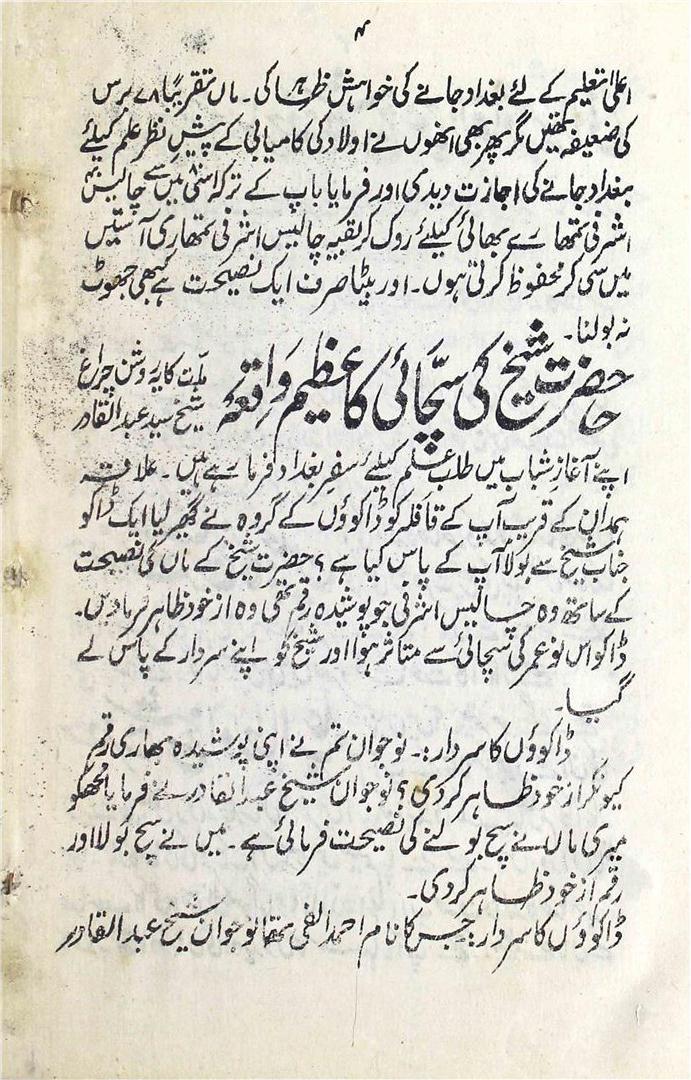 ۴
اعلیٰ تعلیم کے لئے بغداد جانے کی خواہش ظاہر کی۔ ماں تقریباً ۷۸ برس
کی ضعیفہ تھیں مگر پھر بھی انھوں نے اولاد کی کامیابی کے پیشِ نظر علم کیلئے
بغداد جانے کی اجازت دیدی اور فرمایا باپ کے ترکہ اسّی میں سے چالیس
اشرفی تمھارے بھائی کیلئے روک کر بقیہ چالیس اشرفی تمھاری آستیں
میں سی کر محفوظ کرتی ہوں۔ اور بیٹا صرف ایک نصیحت ہے کبھی جھوٹ
نہ بولنا۔
حضرت شیخ کی سچّائی کا عظیم واقعہ
ملّت کا یہ روشن چراغ
شیخ سید عبدالقادر
اپنے آغازِ شباب میں طلب علم کیلئے سفرِ بغداد فرما رہے ہیں۔ علاقہ
ہمدان کے قریب آپ کے قافلہ کو ڈاکوؤں کے گروہ نے گھیر لیا ایک ڈاکو
جناب شیخ سے بولا آپ کے پاس کیا ہے؟ حضرت شیخ کے ماں کی نصیحت
کے ساتھ وہ چالیس اشرفی جو پوشیدہ رقم تھی وہ از خود ظاہر فرمادیں۔
ڈاکو اس نو عمر کی سچائی سے متاثر ہوا اور شیخ کو اپنے سردار کے پاس لے
گیا۔
ڈاکوؤں کا سردار:۔ نوجوان تم نے اپنی پوشیدہ بھاری رقم
کیونکر از خود ظاہر کردی؟ نوجوان شیخ عبدالقادر نے فرمایا مجھکو
میری ماں نے سچ بولنے کی نصیحت فرمائی ہے۔ میں نے سچ بولا اور
رقم از خود ظاہر کردی۔
ڈاکوؤں کا سردار:۔ جس کا نام احمد الفی تھا نوجوان شیخ عبدالقادر